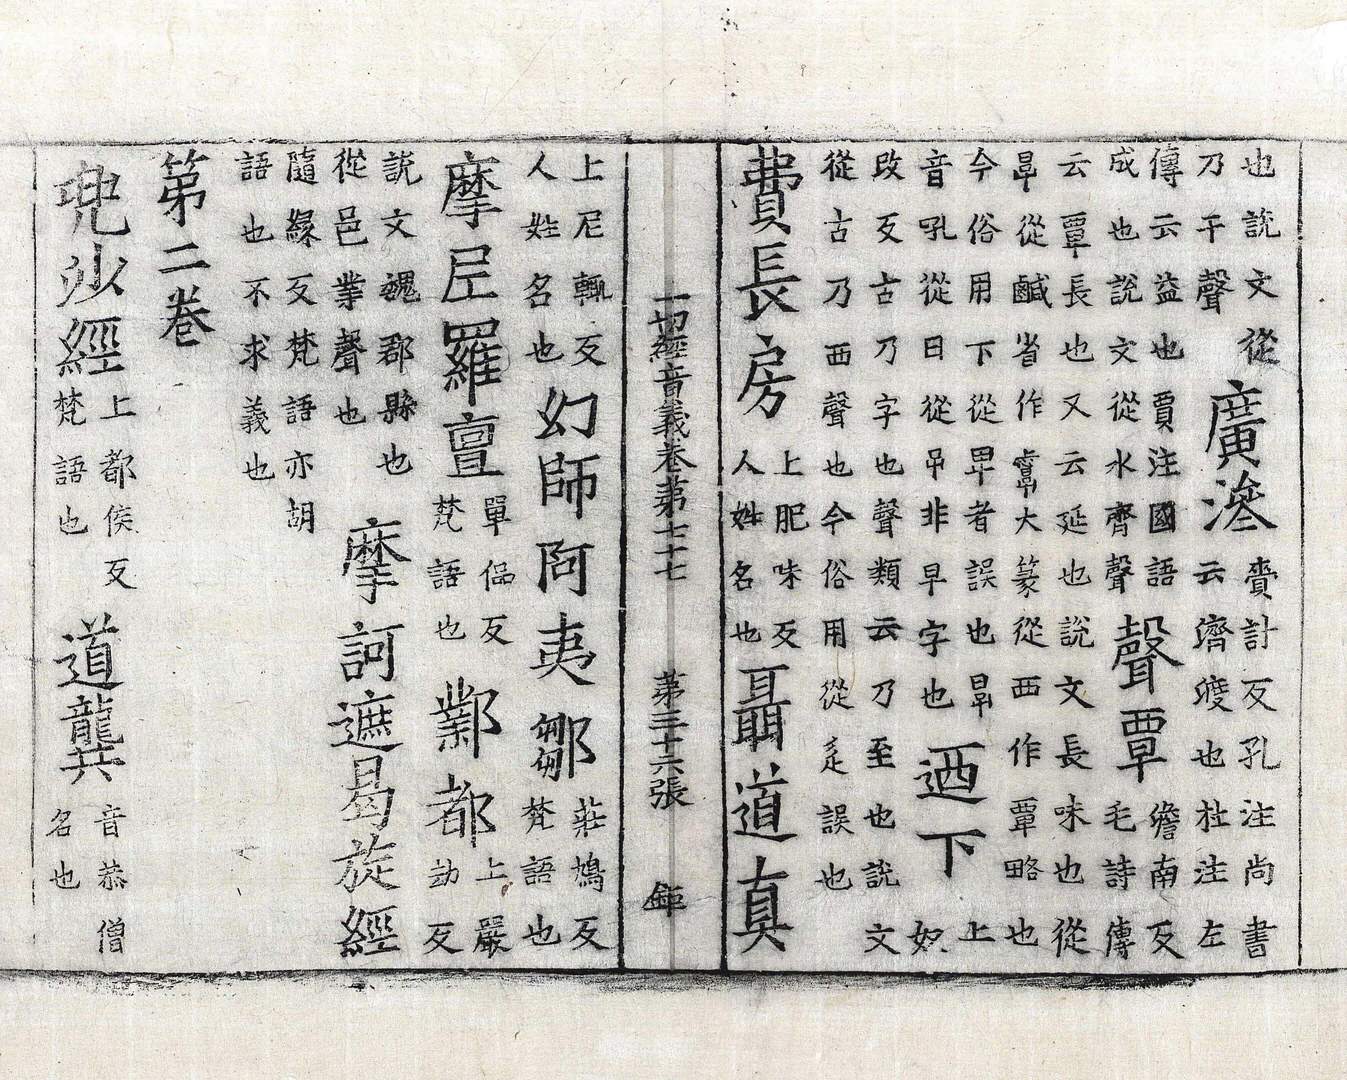 也說文從
乃干聲
廣濟
賫計反孔注尚書
云濟渡也杜注左
傳云益也賈注國語
成也說文從水齊聲
聲覃
儋南反
毛詩傳
云覃長也又云延也說文長味也從
㫗從鹹省作大篆從西作覃略也
今俗用下從㫗者誤也㫗
音吼從曰從吊非早字也
迺下
上
奴
改反古乃字也聲類云乃至也說文
從古乃西聲也今俗用從辵誤也
費長房
上肥味反
人姓名也
聶道真
一切經音義卷第七十七 第三十六張 鉅
上尼輒反
人姓名也
幻師阿夷鄒
莊鳩反
梵語也
摩尼羅亶
單偘反
梵語也
鄴都
上嚴
劫反
說文魏郡縣也
從邑業聲也
摩訶遮曷旋經
隨緣反梵語亦胡
語也不求義也
第二卷
兜沙經
上都侯反
梵語也
道龔
音恭僧
名也